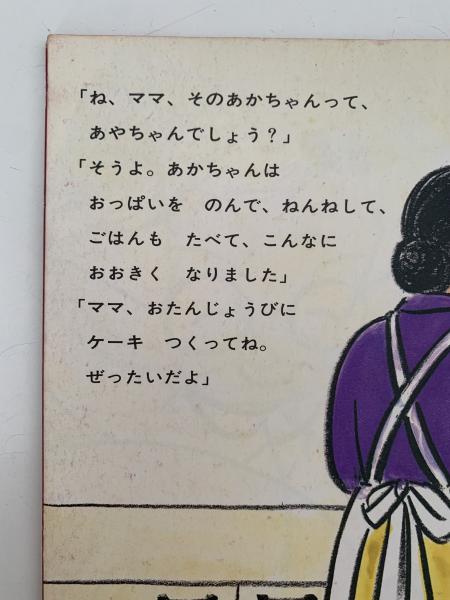 「ね、ママ、そのあかちゃんって、
あやちゃんでしょう？」
「そうよ。あかちゃんは
おっぱいを　のんで、ねんねして、
ごはんも　たべて、こんなに
おおきく　なりました」
「ママ、おたんじょうびに
ケーキ　つくってね。
ぜったいだよ」